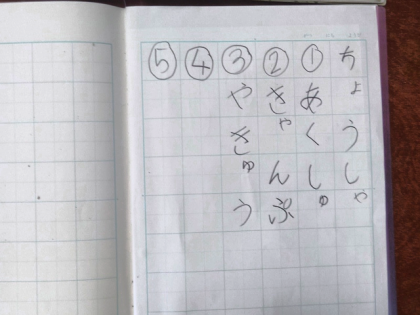 ちょうしゃ
①あくしゅ
②きゃんぷ
③やきゅう
④
⑤